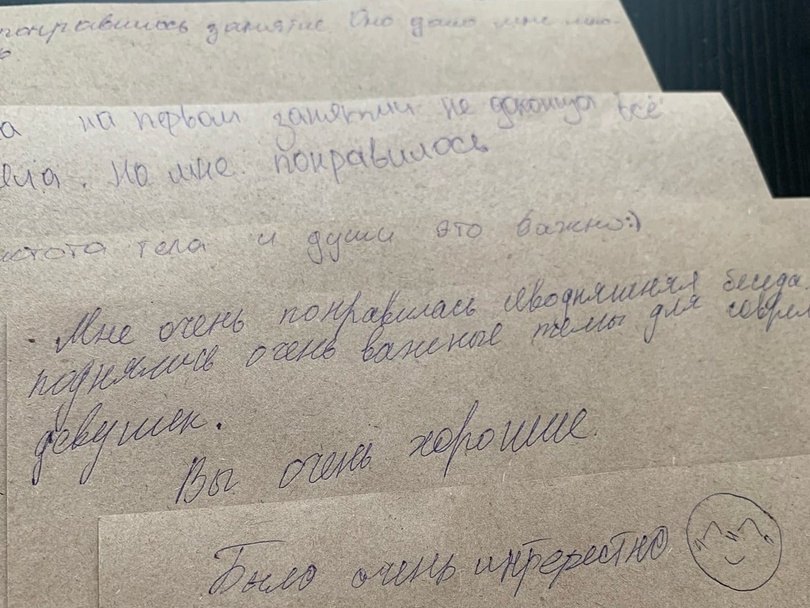 понравилось занятие. Оно дало мне мно-
ь
а на первом занятии не доконца всё
ела. но мне понравилось
истота тела и души это важно:)
Мне очень понравилась севодняшняя беседа.
поднялись очень важные темы для соврем
девушек.
Вы очень хорошие.
Было очень интерестно